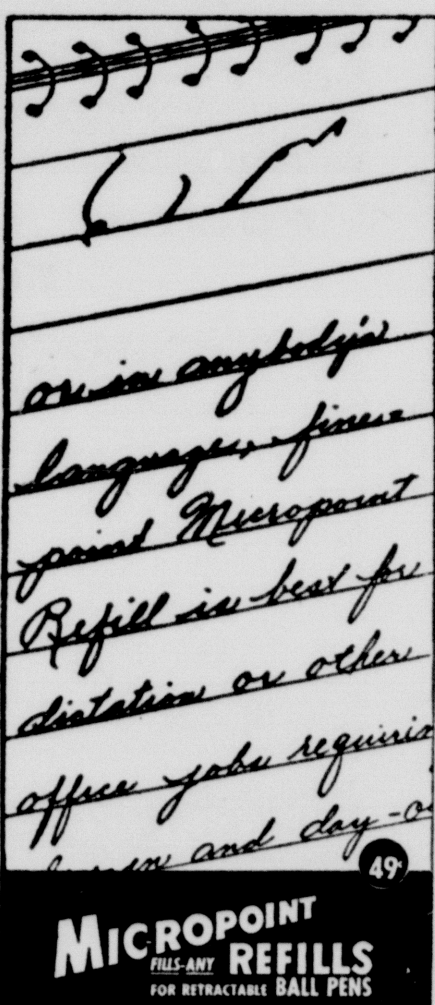 or in anybody's
language, finer
point Micropoint
Refill is best for
dictation or other
office jobs requirin
and day-o
49¢
MICROPOINT
FILLS-ANY REFILLS
FOR RETRACTABLE BALL PENS